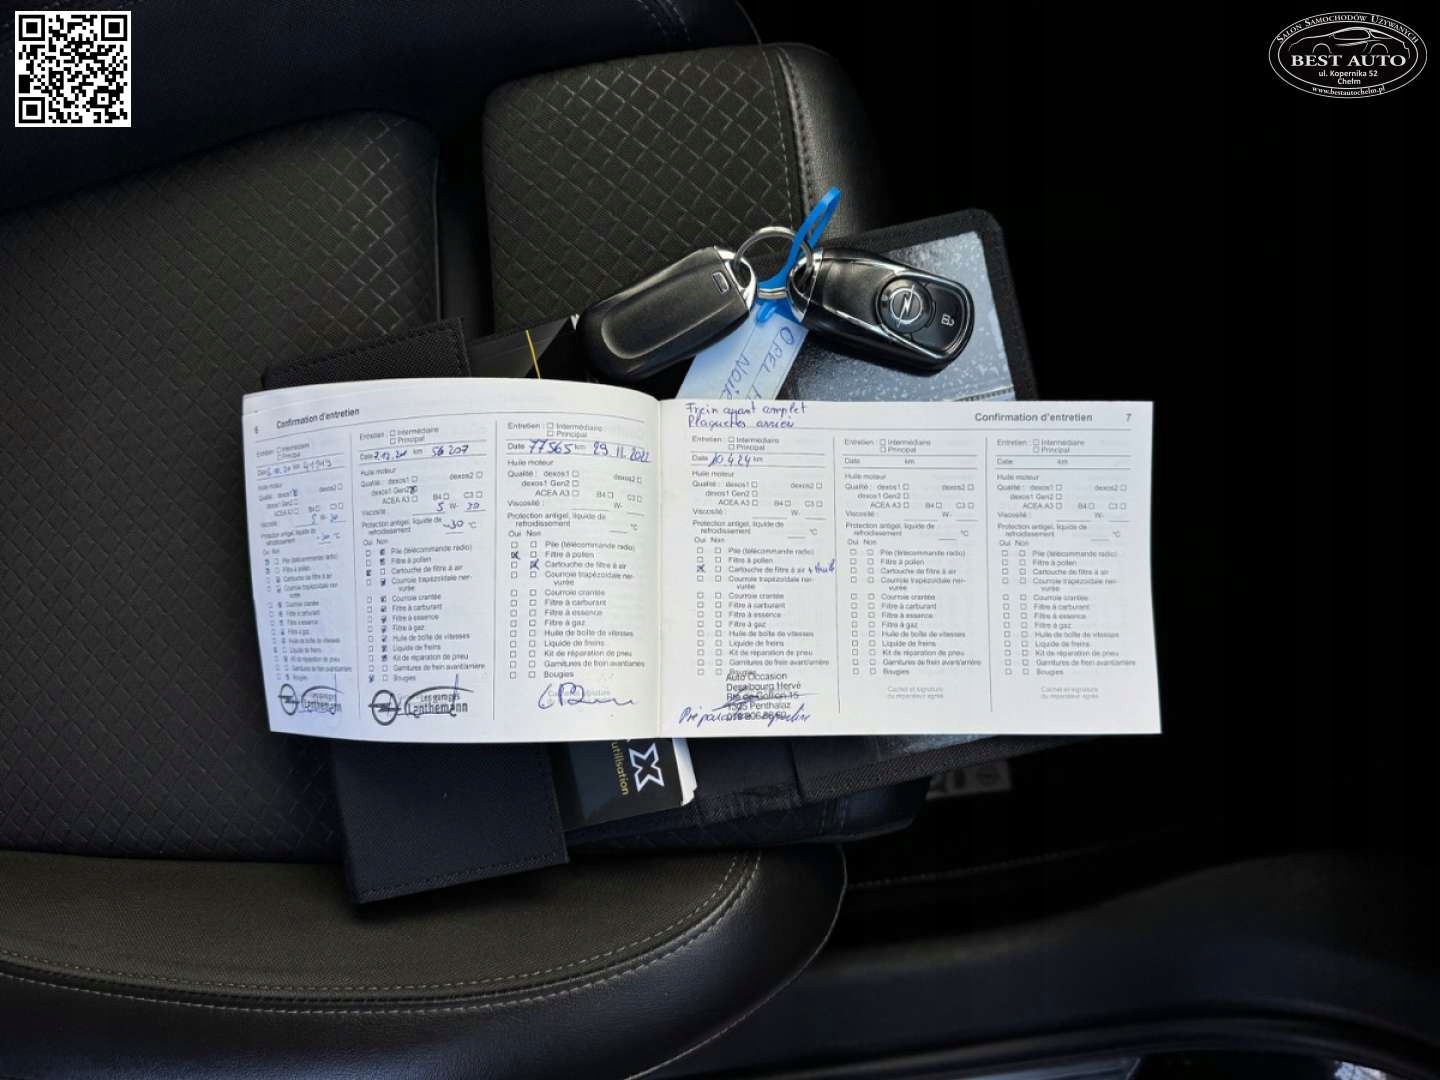 SALON SAMOCHODÓW UŻYWANYCH
BEST AUTO
ul. Kopernika 52
Chełm
www.bestautochelm.pl
OPEL
NOIR
6 Confirmation d'entretien
Entretien : Intermédiaire
Principal
km 41943
Huile moteur
Qualité : dexos1 dexos2
dexos1 Gen2
ACEA A3 B4 C3
Viscosité : 5 W- 30
Protection antigel, liquide de
refroidissement -30 °C
Oui Non
Pile (télécommande radio)
Filtre à pollen
Cartouche de filtre à air
Courroie trapézoïdale ner-
vurée
Courroie crantée
Filtre à carburant
Filtre à essence
Filtre à gaz
Huile de boîte de vitesses
Liquide de freins
Kit de réparation de pneu
Garnitures de frein avant/arrière
Bougies
Les garages
Lanthemann
Entretien : Intermédiaire
Principal
Date 2.12.21 km 56207
Huile moteur
Qualité : dexos1 dexos2
dexos1 Gen2
ACEA A3 B4 C3
Viscosité : 5 W- 30
Protection antigel, liquide de
refroidissement -30 °C
Oui Non
Pile (télécommande radio)
Filtre à pollen
Cartouche de filtre à air
Courroie trapézoïdale ner-
vurée
Courroie crantée
Filtre à carburant
Filtre à essence
Filtre à gaz
Huile de boîte de vitesses
Liquide de freins
Kit de réparation de pneu
Garnitures de frein avant/arrière
Bougies
Les garages
Lanthemann
Entretien : Intermédiaire
Principal
Date 77565 km 29.11.2022
Huile moteur
Qualité : dexos1 dexos2
dexos1 Gen2
ACEA A3 B4 C3
Viscosité : W-
Protection antigel, liquide de
refroidissement °C
Oui Non
Pile (télécommande radio)
Filtre à pollen
Cartouche de filtre à air
Courroie trapézoïdale ner-
vurée
Courroie crantée
Filtre à carburant
Filtre à essence
Filtre à gaz
Huile de boîte de vitesses
Liquide de freins
Kit de réparation de pneu
Garnitures de frein avant/arrière
Bougies
Frein avant complet
Plaquettes arrière
Confirmation d'entretien 7
Entretien : Intermédiaire
Principal
Date 10.4.24 km
Huile moteur
Qualité : dexos1 dexos2
dexos1 Gen2
ACEA A3 B4 C3
Viscosité : W-
Protection antigel, liquide de
refroidissement °C
Oui Non
Pile (télécommande radio)
Filtre à pollen
Cartouche de filtre à air + huile
Courroie trapézoïdale ner-
vurée
Courroie crantée
Filtre à carburant
Filtre à essence
Filtre à gaz
Huile de boîte de vitesses
Liquide de freins
Kit de réparation de pneu
Garnitures de frein avant/arrière
Bougies
Auto Occasion
Desaibourg Hervé
15
Penthalaz
Entretien : Intermédiaire
Principal
Date km
Huile moteur
Qualité : dexos1 dexos2
dexos1 Gen2
ACEA A3 B4 C3
Viscosité : W-
Protection antigel, liquide de
refroidissement °C
Oui Non
Pile (télécommande radio)
Filtre à pollen
Cartouche de filtre à air
Courroie trapézoïdale ner-
vurée
Courroie crantée
Filtre à carburant
Filtre à essence
Filtre à gaz
Huile de boîte de vitesses
Liquide de freins
Kit de réparation de pneu
Garnitures de frein avant/arrière
Bougies
Cachet et signature
du réparateur agréé
Entretien : Intermédiaire
Principal
Date km
Huile moteur
Qualité : dexos1 dexos2
dexos1 Gen2
ACEA A3 B4 C3
Viscosité : W-
Protection antigel, liquide de
refroidissement °C
Oui Non
Pile (télécommande radio)
Filtre à pollen
Cartouche de filtre à air
Courroie trapézoïdale ner-
vurée
Courroie crantée
Filtre à carburant
Filtre à essence
Filtre à gaz
Huile de boîte de vitesses
Liquide de freins
Kit de réparation de pneu
Garnitures de frein avant/arrière
Bougies
Cachet et signature
du réparateur agréé
X
utilisation